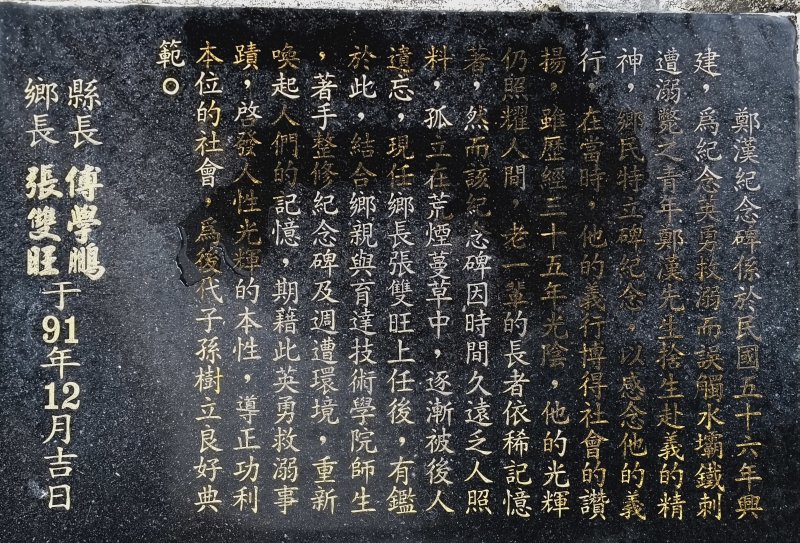 鄭漢紀念碑係於民國五十六年興
建，為紀念英勇救溺而誤觸水壩鐵刺
遭溺斃之青年鄭漢先生捨生赴義的精
神，鄉民特立碑紀念，以感念他的義
行，在當時，他的義行博得社會的讚
揚，雖歷經三十五年光陰，他的光輝
仍照耀人間，老一輩的長者依稀記憶
著，然而該紀念碑因時間久遠乏人照
料，孤立在荒煙蔓草中，逐漸被後人
遺忘，現任鄉長張雙旺上任後，有鑑
於此，結合鄉親與育達技術學院師生
，著手整修紀念碑及週遭環境，重新
喚起人們的記憶，期藉此英勇救溺事
蹟，啓發人性光輝的本性，導正功利
本位的社會，為後代子孫樹立良好典
範。
縣長 傅學鵬
鄉長 張雙旺
于91年12月吉日